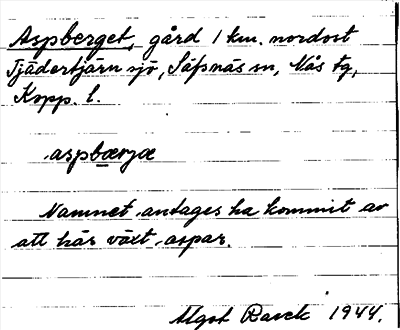 Aspberget, gård 1 km. nordost
Tjädertjärn sjö, Säfsnäs sn, Nås tg,
Kopp. l.
aspbærjæ
Namnet antages ha kommit av
att här växt aspar.
Algot Barck 1944.